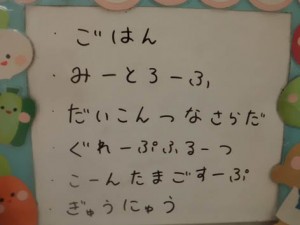 ・ごはん
・みーとろーふ
・だいこんつなさらだ
・ぐれーぷふるーつ
・こーんたまごすーぷ
・ぎゅうにゅう